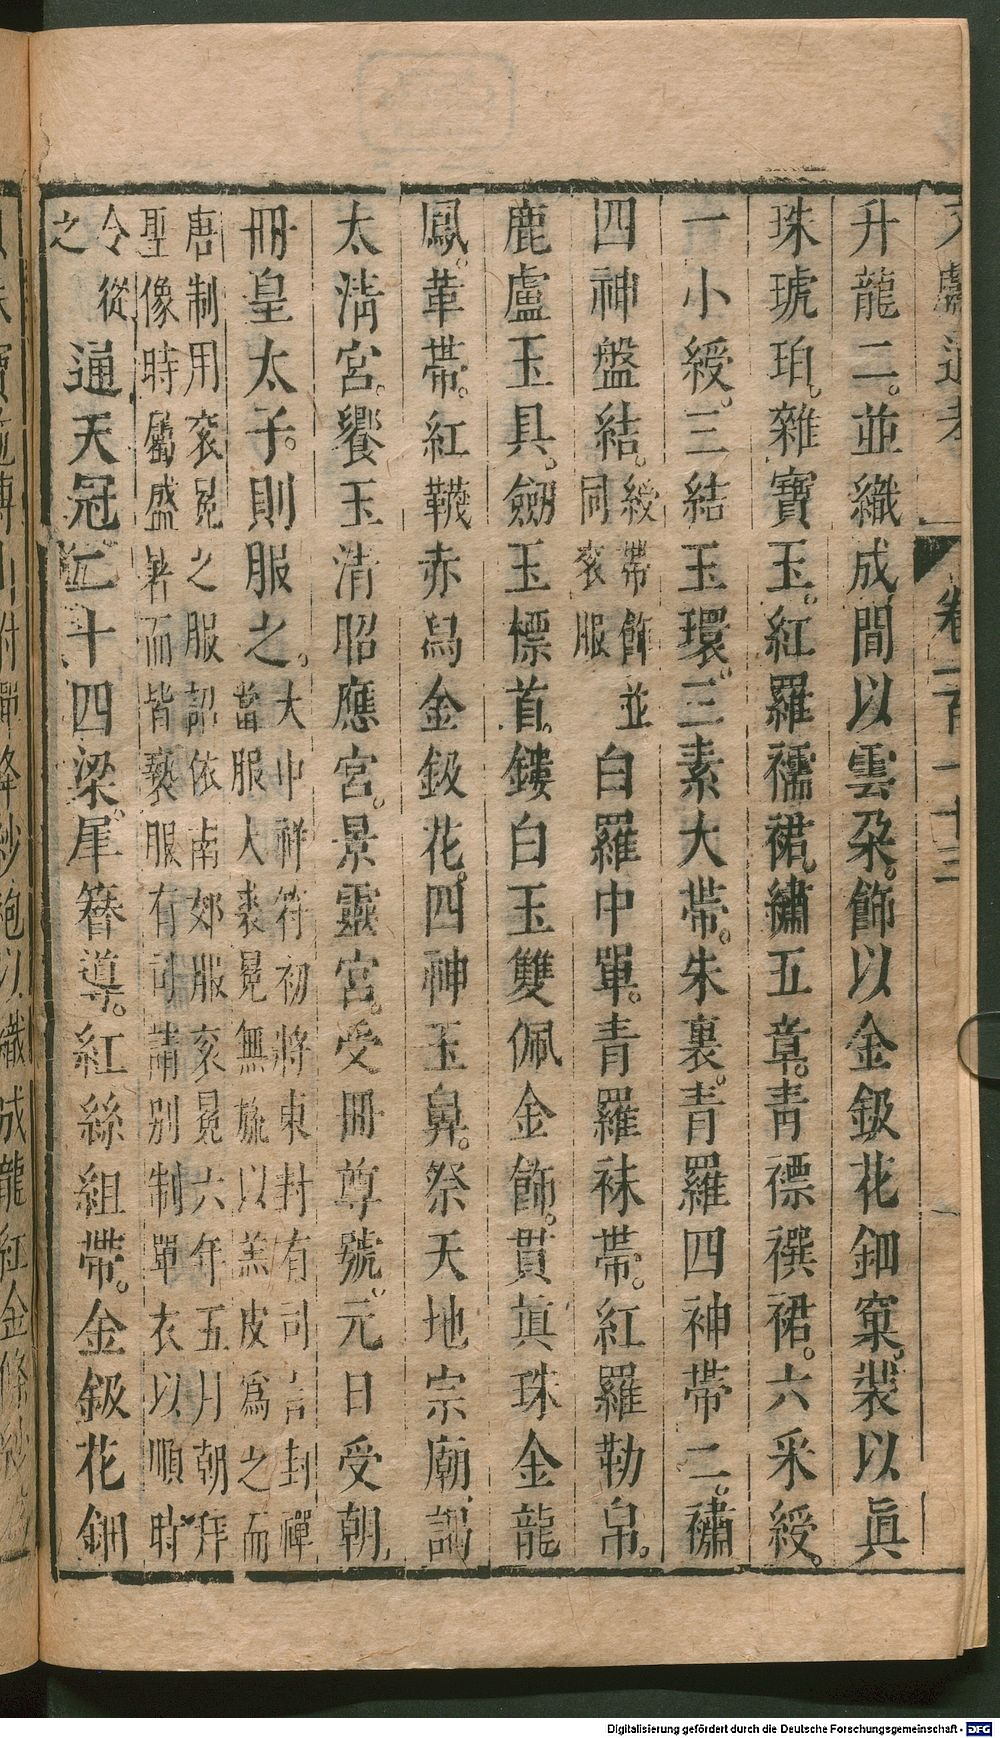 文獻通考 卷一百一十三
升龍二並織成間以雲朶飾以金鈒花鈿窠裝以真
珠琥珀雜寶玉紅羅襦裙繡五章青褾襈裙六采綬
一小綬三結玉環三素大帶朱裏青羅四神帶二繡
四神盤結綬帶飾並同衮服白羅中單青羅袜帶紅羅勒帛
鹿盧玉具劔玉標首鏤白玉雙佩金飾貫真珠金龍
鳳革帶紅韈赤舄金鈒花四神玉鼻祭天地宗廟謁
太淸宮饗玉清昭應宮景靈宮受冊尊號元日受朝
冊皇太子則服之大中祥符初將東封有司言封禪當服大裘冕無旒以羔皮爲之而
唐制用衮冕之服詔依南郊服衮冕六年五月朝拜聖像時屬盛暑而皆褻服有司請別制單衣以順時
令從之 通天冠二十四梁犀簪導紅絲組帶金鈒花鈿
Digitalisierung gefördert durch die Deutsche Forschungsgemeinschaft - DFG